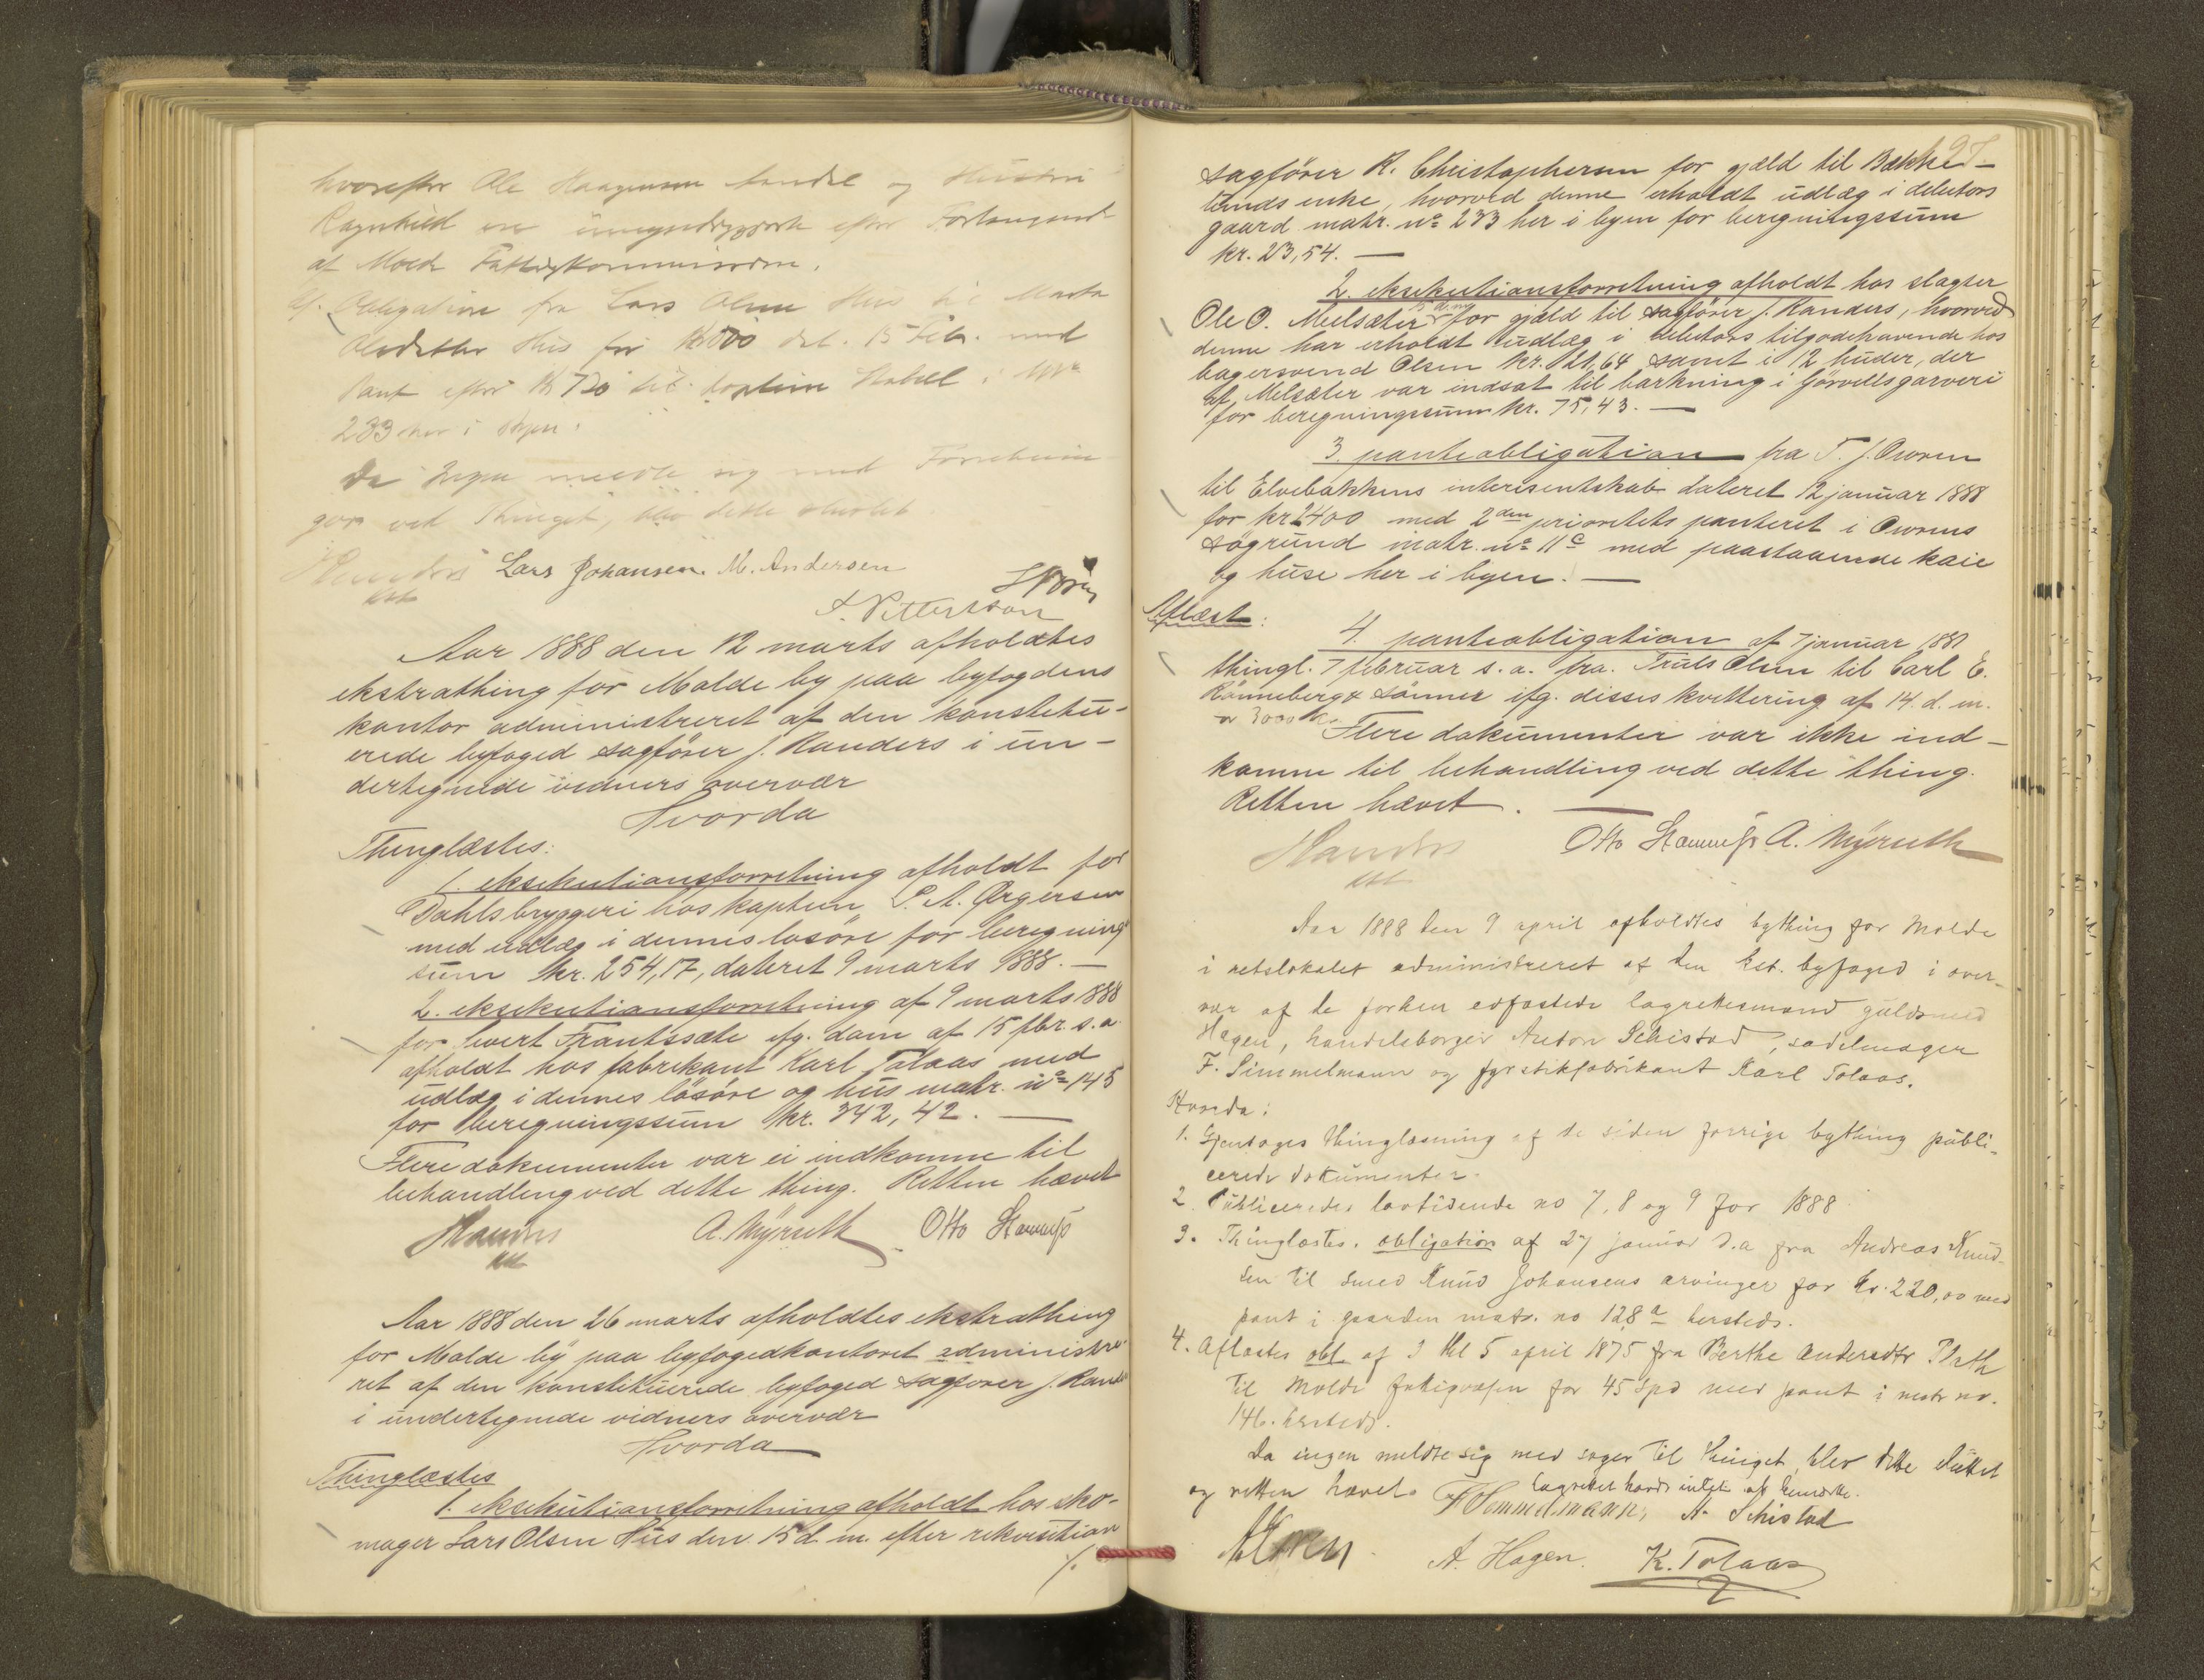 hvorefter Ole Haagensen og Hustru
Ragnhild en efter Forlangende
af Molde Fattigkommission.
Obligation fra Lars Olsen Hus til Marta
Olsdatter Hus for dat. 15 Feb. med
Pant efter 720 til i
233 her i Byen.
Da Ingen meldte sig med
ved Thinget, blev dette sluttet.
Randers Lars Johansen. M. Andersen
kst
A. Pettersson
Aar 1888 den 12 marts afholdtes
ekstrathing for Molde by paa byfogdens
kontor administreret af den konstitu-
erede byfoged sagfører J. Randers i un-
dertegnede vidners overvær
Hvorda
Thinglæstes:
1. eksekutionsforretning afholdt for
Dahls bryggeri hos kaptein P. A. Ørgersen
med udlæg i dennes løsøre for beregning-
sum kr. 254,17, dateret 9 marts 1888. —
2. eksekutionsforretning af 9 marts 1888
for Sivert Frantssæte ifg. dom af 15 fbr. s.a.
afholdt hos fabrikant Karl Tolaas med
udlæg i dennes løsøre og hus matr. no 145
for beregningssum kr. 342,42. —
Flere dokumenter var ei indkomne til
behandling ved dette thing. Retten hævet
Randers A. Myruth Otto Hannesø
kst
Aar 1888 den 26 marts afholdtes ekstrathing
for Molde by paa byfogedkontoret administre-
ret af den konstituerede byfoged sagfører J. Rand
i undertegnede vidners overvær
Hvorda
Thinglæstes
1. eksekutionsforretning afholdt hos sko-
mager Lars Olsen Hus den 15 d. m. efter rekvisition
/.
sagfører R. Christophersen for gjæld til Bække-
lunds enke, hvorved denne erholdt udlæg i debitors
gaard matr. no 233 her i byen for beregningssum
kr. 23,54. —
2. eksekutionsforretning afholdt hos slagter
Ole O. Meelsæter for gjæld til sagfører J. Randers, hvorved
denne har erholdt udlæg i debitors tilgodehavende hos
bagersvend Olsen kr. 21,64 samt i 12 huder, der
af Melsæter var indsat til barkning i Gørvells garveri
for beregningssum kr. 75,43. —
3. panteobligation fra T. J. Owren
til Elvebakkens interesentskab dateret 12 januar 1888
for kr 2400 med 2den prioritets panteret i Owrens
søgrund matr. no 11c med paastaaende kaie
og huse her i byen. —
Aflæst:
4. panteobligation af 7 januar 1881
thingl. 7 februar s. a. fra Truls Olsen til Carl E.
Rønneberg & Sønner ifg. disses kvittering af 14. d. m.
3000 kr.
Flere dokumenter var ikke ind-
komne til behandling ved dette thing.
Retten hævet. —
Randers Otto Hannesø A. Myruth
kst
Aar 1888 den 9 april afholdtes bything for Molde
i retslokalet administreret af den kst. byfoged i over-
vær af de forhen edfæstede lagrettesmænd guldsmed
Hagen, handelsborger Anton Schistad, sadelmager
F. Simmelmann og fyrstikfabrikant Karl Tolaas.
Hvorda:
1. Gjentoges thinglæsning af de siden forrige bything publi-
cerede dokumenter.
2. Publiceredes lovtidende no 7, 8 og 9 for 1888.
3. Thinglæstes. obligation af 27 januar d.a fra Andreas Knud-
sen til smed Knud Johansens arvinger for kr. 220,00 med
pant i gaarden matr. no 128a hersteds.
4. Aflæstes obl af 3 thl 5 april 1875 fra Berthe Andersdtr
til Molde fattigvæsen for 45 Spd med pant i matr no.
146. hersteds.
Da ingen meldte sig med sager til thinget blev dette sluttet
og retten hævet. Lagrettet havde intet at bemærke.
F Simmelmann, A. Schistad
A. Hagen. K. Tolaas